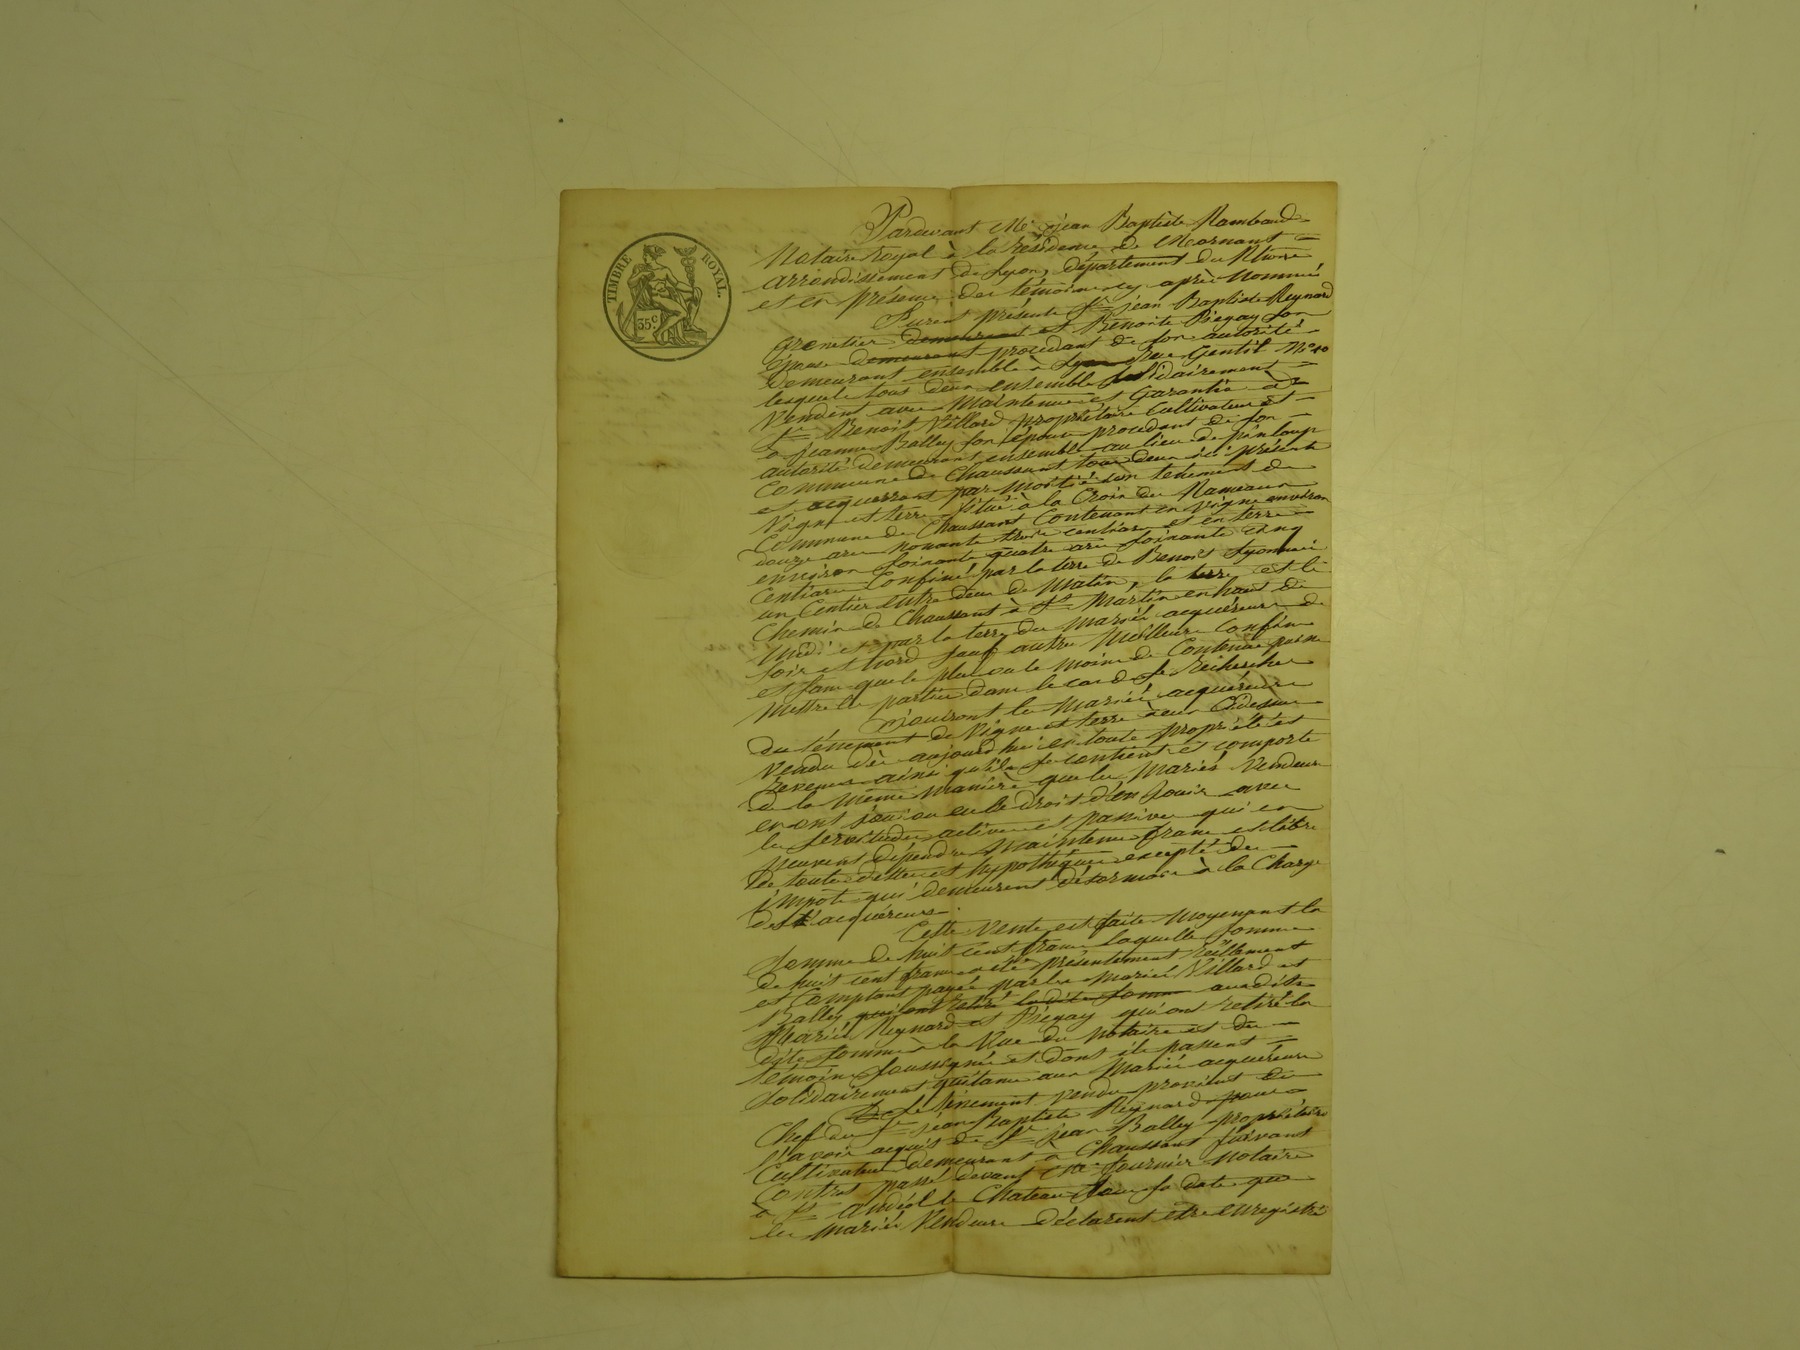 TIMBRE ROYAL.
35c
Pardevant Me jean Baptiste Rambaud
Notaire royal à la résidence de Mornant
arrondissement de Lyon, département du Rhône
et en présence des témoins cy après Nommés
Furent présents Sr jean Baptiste Reynard
grenetier demeurant et Benoite Piegay son
épouse demeurant procedant de son autorité
demeurant ensemble à Lyon Rue Gentil No 10
lesquels tous deux ensemble solidairement
Vendent avec Maintenue et Garantie à
Sr Benoit Villard propriétaire Cultivateur et
à jeanne Balley son épouse procedant de son
autorité demeurant ensemble au lieu de
Commune de Chaussant tous deux ici présents
et acquerrant par moitié un tenement de
Vigne et terre situé à la Croix des Rameaux
Commune de Chaussant Contenant en Vigne environ
douze ares nonante trois centiares et en terre
environ soixante quatre ares soixante cinq
Centiares Confiné par la terre de Benoit Lyonnet
un Centier entre deux de Matin, la terre et le
Chemin de Chaussant à St Martin en haut de
Midi et par la terre des Mariés acquéreurs de
soir et nord sauf autres Meilleurs Confins
et sans que le plus ou le moins de Contenue puisse
Mettre les parties dans le cas de se Rechercher
Jouiront les Mariés acquéreurs
du ténement de Vigne et terre à eux Cidessus
Vendu dès aujourd'hui en toute propriété et
Revenus ainsi qu'il se contient et comporte
de la même manière que les Mariés Vendeurs
en ont joui ou eu le droit d'en Jouir avec
les servitudes actives et passives qui en
peuvent dépendre Maintenu franc et libre
de toutes dettes et hypothèques excepté des
impots qui demeurent désormais à la Charge
des acquéreurs.
Cette Vente est faite Moyenant la
somme de huit cent francs laquelle somme
de huit cent francs a été présentement Réellement
et Comptant payée par les Mariés Villard et
Balley qui ont retiré la dite somme auxdits
Mariés Reynard et Piegay qui ont retiré la
dite somme à la Vue du Notaire et des
témoins soussignés et dont ils passent
solidairement quitance aux Mariés acquéreurs
Le ténement Vendu provient du
Chef du Sr jean Baptiste Reynard pour
l'avoir acquis de Sr jean Balley propriétaire
Cultivateur demeurant à Chaussant suivant
Contrat passé devant Me fournier Notaire
à St andéol le Chateau sous sa date que
les Mariés Vendeurs déclarent être enregistré